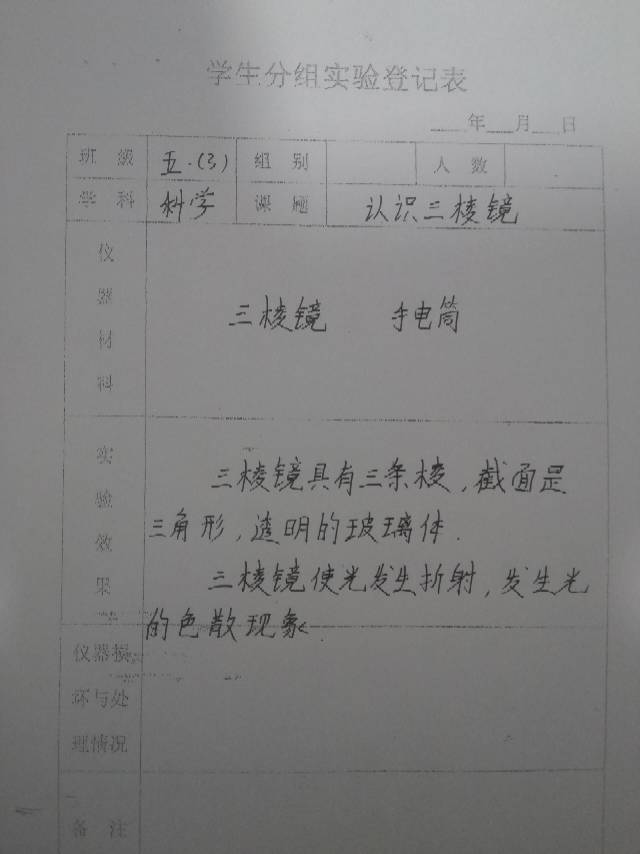 学生分组实验登记表
年 月 日
班 级 五.(3) 组 别 人 数
学 科 科学 课 题 认识三棱镜
仪器材料
三棱镜 手电筒
实验效果
三棱镜具有三条棱,截面是
三角形,透明的玻璃体.
三棱镜使光发生折射,发生光
的色散现象
仪器损
坏与处
理情况
备 注